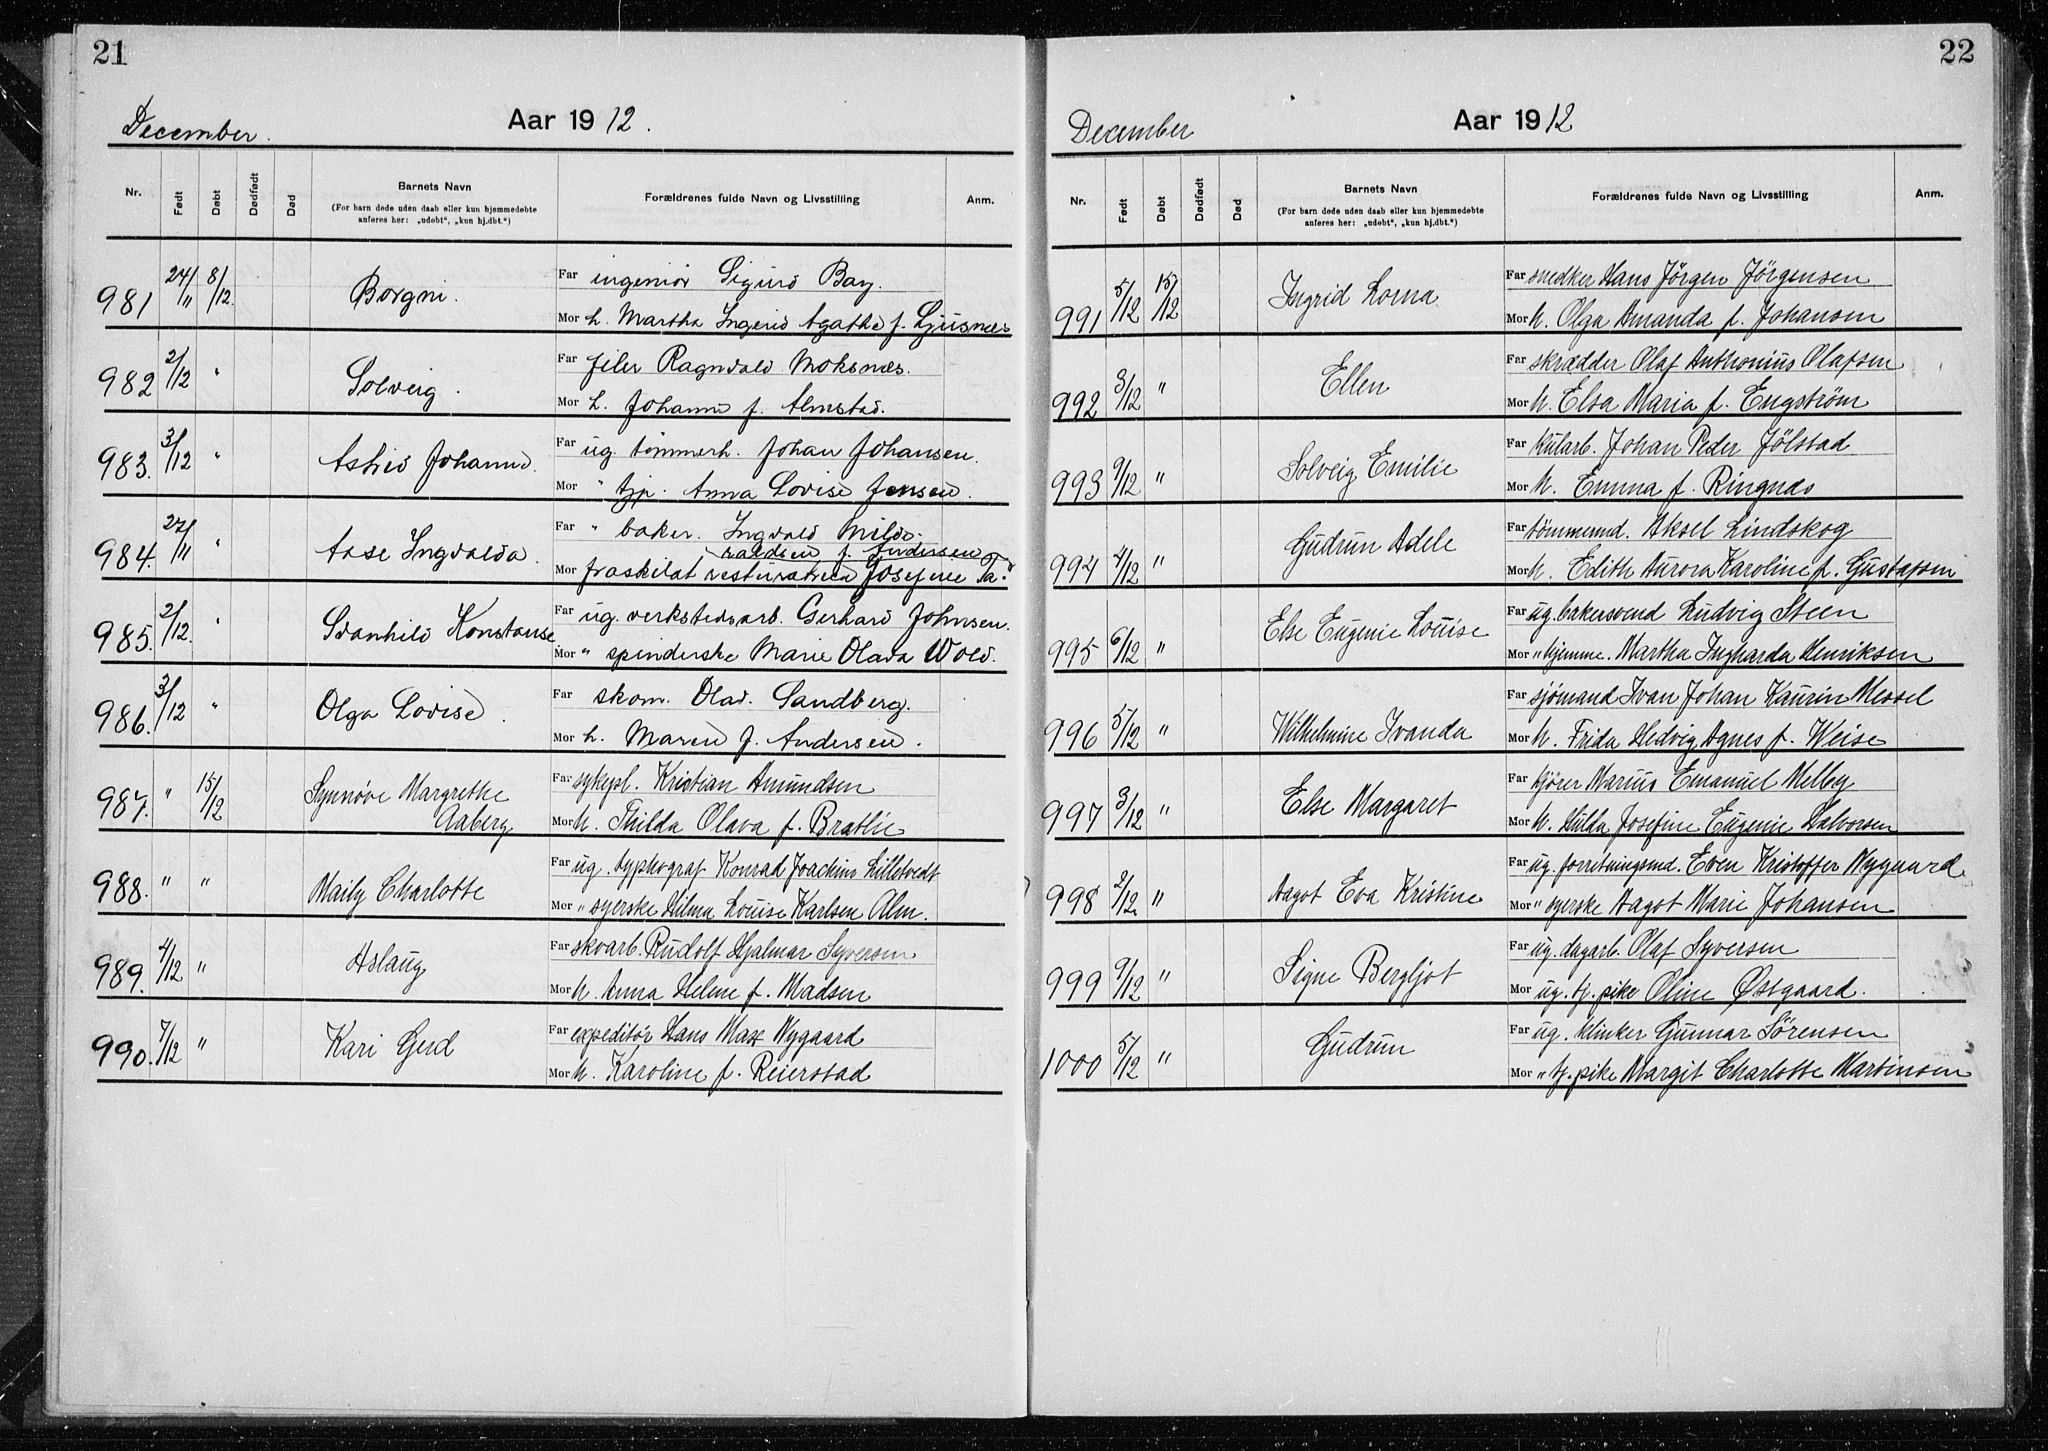 21
December.
Aar 1912.
Nr. Født Døbt Dødfødt Død Barnets Navn Forældrenes fulde Navn og Livsstilling Anm.
(For barn døde uden daab eller kun hjemmedøbte
anføres her: „udøbt“, „kun hj.dbt.“)
981 24/11 8/12 Borgni. Far ingeniør Sigurd Bay.
Mor h. Martha Ingerid Agathe f. Ljusnæs
982 2/12 " Solveig. Far filer Ragnvald Moksnæs.
Mor h. Johanne f. Almstad.
983. 3/12 " Astrid Johanne. Far ug. tømmerh. Johan Johansen.
Mor " tjp. Anna Lovise Jensen.
984. 27/11 " Aase Ingvalda. Far " baker. Ingvald Milde.
raldsen f. Andersen
Mor fraskilat Josefine
985. 2/12. " Svanhild Konstanse Far ug. verkstedsarb. Gerhard Johnsen.
Mor " spinderske Marie Olava Wold.
986. 3/12 " Olga Lovise. Far skom. Olav. Sandberg.
Mor h. Maren f. Andersen.
987. " 15/12 Synnøve Margrethe Far sykepl. Kristian Amundsen
Aaberg Mor h. Thilda Olava f. Bratlie
988. " " Maily Charlotte Far ug. typhograf Konrad Joachim Lilletvedt
Mor " syerske Hilma Louise Karlsen Alm.
989. 4/12 " Aslaug Far skoarb. Rudolf Hjalmar Syversen
Mor h. Anna Helene f. Madsen
990. 7/12 " Kari Gerd Far expeditør Hans Max Nygaard
Mor h. Karoline f. Reierstad
22
December
Aar 1912
Nr. Født Døbt Dødfødt Død Barnets Navn Forældrenes fulde Navn og Livsstilling Anm.
(For barn døde uden daab eller kun hjemmedøbte
anføres her: „udøbt“, „kun hj.dbt.“)
991 5/12 15/12 Ingrid Lorna Far snedker Hans Jörgen Jörgensen
Mor h. Olga Amanda f. Johansen
992 3/12 " Ellen Far skrædder Olaf Anthonius Olafsen
Mor h. Elsa Maria f. Engström
993 9/12 " Solveig Emilie Far kularb. Johan Peder Jölstad
Mor h. Emma f. Ringnæs
994 4/12 " Gudrun Adele Far tömmermd. Aksel Lindskog
Mor h. Edith Aurora Karoline f. Gustafson
995 6/12 " Else Eugenie Louise Far ug. bakersvend Ludvig Steen
Mor " hjemme. Martha Ingharda Henriksen
996 5/12 " Wilhelmine Ivanda Far sjömand Ivan Johan Kaurin Messel
Mor h. Frida Hedvig Agnes f. Weise
997 3/12 " Else Margaret Far kjörer Marius Emanuel Melby
Mor h. Hilda Josefine Eugenie Halvorsen
998 2/12. " Aagot Eva Kristine Far ug. forretningsmd. Even Kristoffer Nygaard
Mor " syerske Aagot Marie Johansen
999 9/12 " Signe Bergljot Far ug. dagarb. Olaf Syversen
Mor ug. tj. pike Oline Østgaard.
1000 5/12 " Gudrun Far ug. klinker Gunnar Sörensen
Mor " tj. pike Margit Charlotte Martinsen